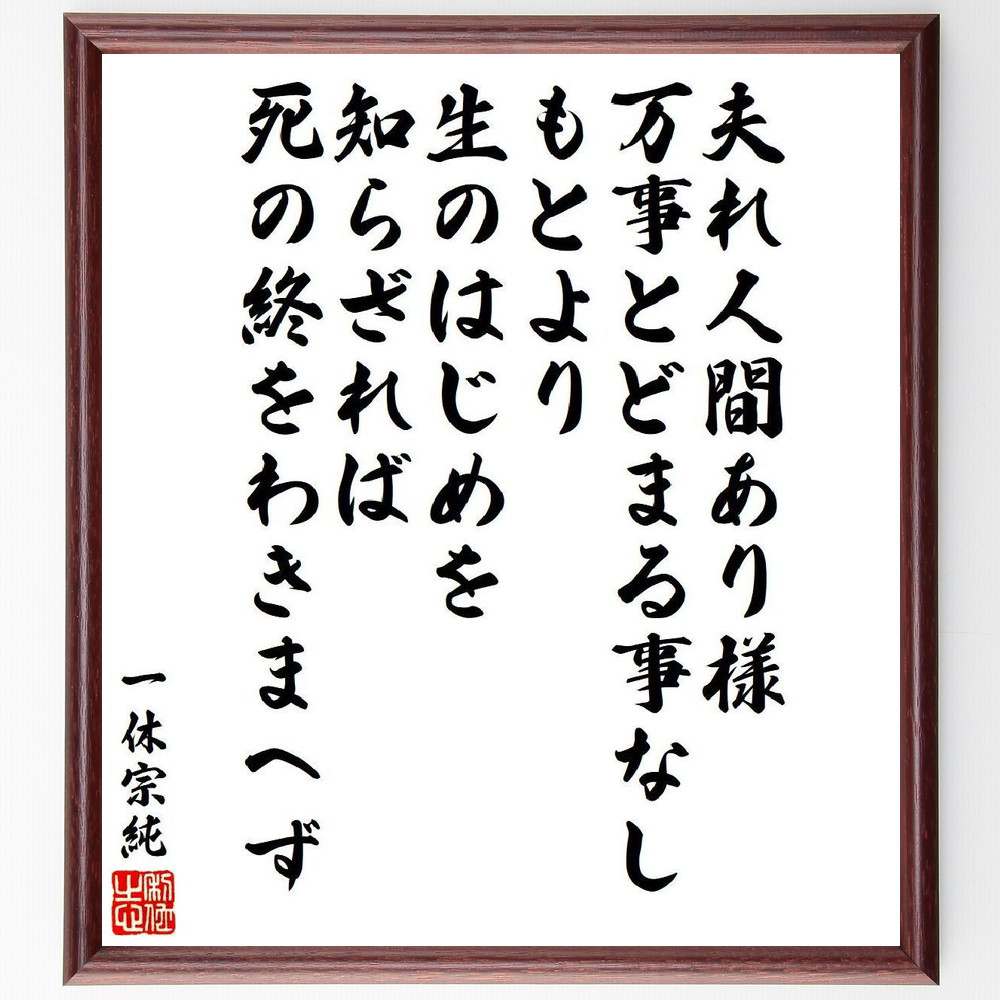 夫れ人間あり様
万事とどまる事なし
もとより
生のはじめを
知らざれば
死の終をわきまへず
一休宗純